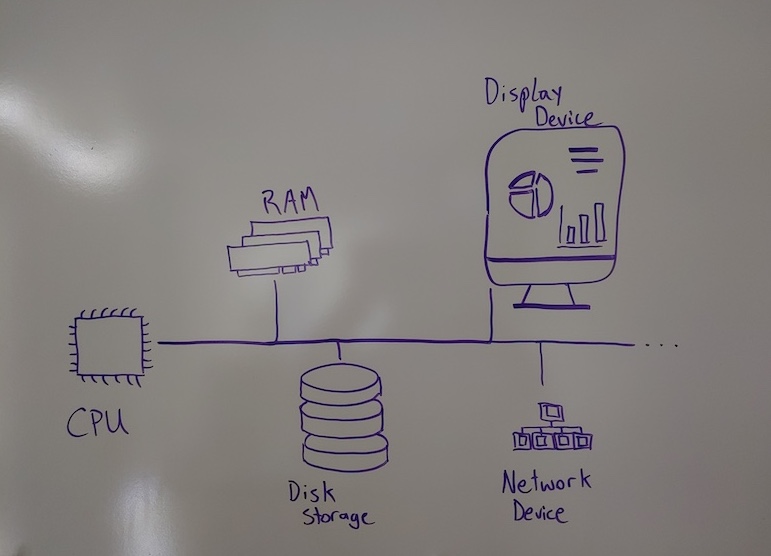 Display
Device
RAM
CPU
Disk
Storage
Network
Device
...